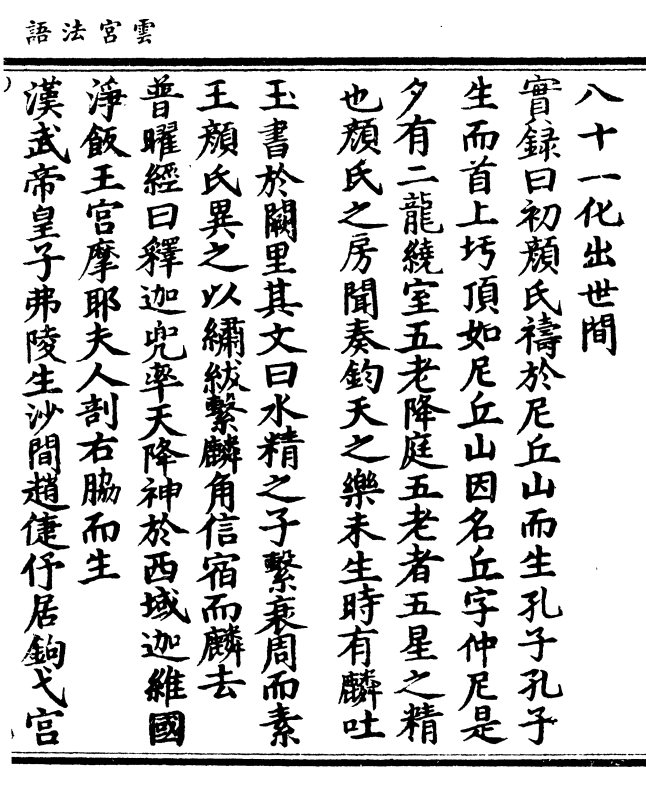 雲宮法語
八十一化出世間
實録曰初顔氏禱於尼丘山而生孔子孔子
生而首上圬頂如尼丘山因名丘字仲尼是
夕有二龍繞室五老降庭五老者五星之精
也顔氏之房聞奏鈞天之樂未生時有麟吐
玉書於闕里其文曰水精之子繫衰周而素
王顔氏異之以繡紱繫麟角信宿而麟去
普曜經曰釋迦兜率天降神於西域迦維國
淨飯王宮摩耶夫人剖右脇而生
漢武帝皇子弗陵生沙間趙倢伃居鉤弋宮